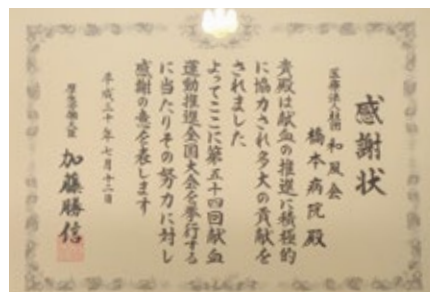 感謝状
医療法人社団和風会
橋本病院殿
貴殿は献血の推進に積極的
に協力され多大の貢献を
されました
よってここに第五十四回献血
運動推進全国大会を挙行する
に当たりその努力に対し
感謝の意を表します
平成三十年七月十二日
厚生労働大臣 加藤勝信